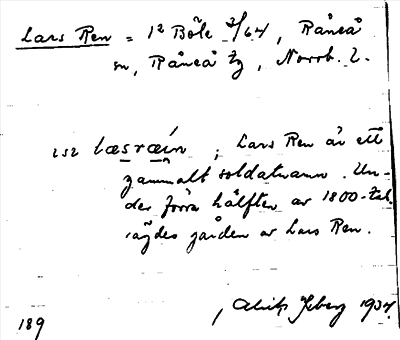 Lars Ren = 1² Böle 2/64, Råneå
sn, Råneå tg, Norrb. l.
læsræin ; Lars Ren är ett
gammalt soldatnamn. Un-
der förra hälften av 1800-tal.
ägdes gården av Lars Ren.
1937.
189